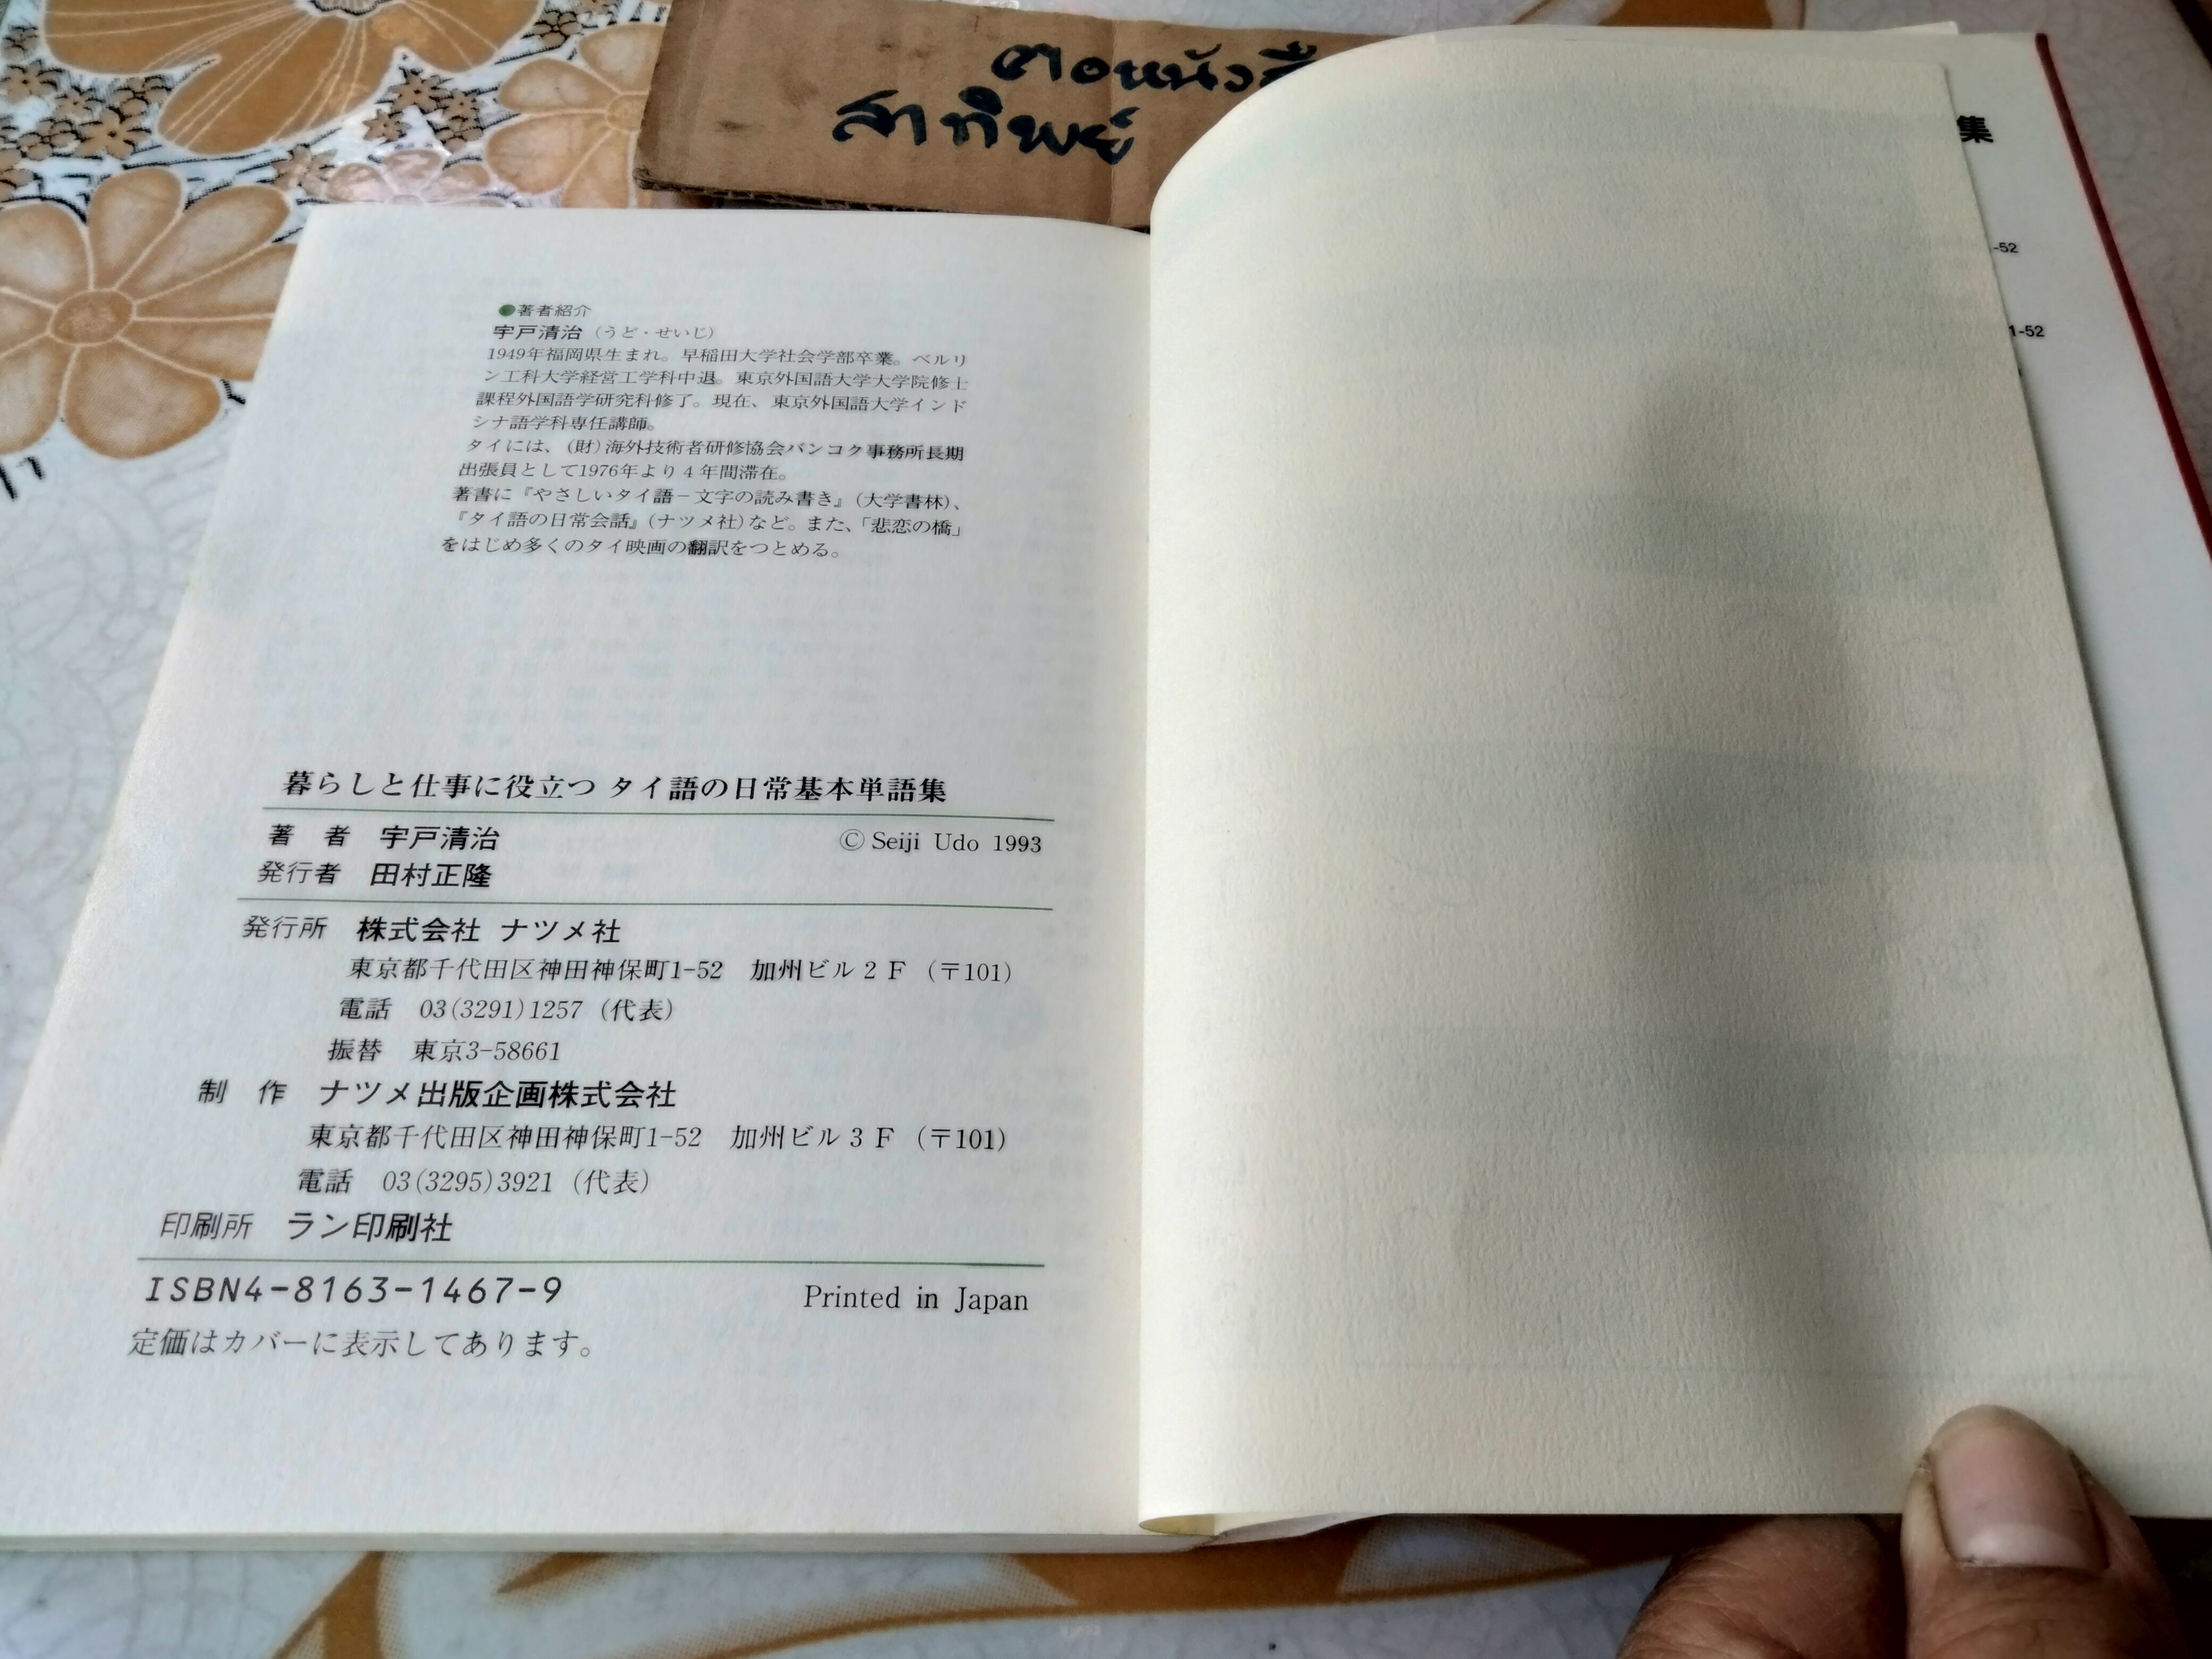 ต่อหนังสื
สาทิพย์
●著者紹介
宇戸清治（うど・せいじ）
1949年福岡県生まれ。早稲田大学社会学部卒業。ベルリ
ン工科大学経営工学科中退。東京外国語大学大学院修士
課程外国語学研究科修了。現在、東京外国語大学インド
シナ語学科専任講師。
タイには、(財)海外技術者研修協会バンコク事務所長期
出張員として1976年より４年間滞在。
著書に『やさしいタイ語－文字の読み書き』(大学書林)、
『タイ語の日常会話』(ナツメ社)など。また、「悲恋の橋」
をはじめ多くのタイ映画の翻訳をつとめる。
暮らしと仕事に役立つ タイ語の日常基本単語集
著　者　宇戸清治　© Seiji Udo 1993
発行者　田村正隆
発行所　株式会社 ナツメ社
東京都千代田区神田神保町1-52　加州ビル２Ｆ（〒101）
電話　03(3291)1257（代表）
振替　東京3-58661
制　作　ナツメ出版企画株式会社
東京都千代田区神田神保町1-52　加州ビル３Ｆ（〒101）
電話　03(3295)3921（代表）
印刷所　ラン印刷社
ISBN4-8163-1467-9　Printed in Japan
定価はカバーに表示してあります。
集
-52
1-52